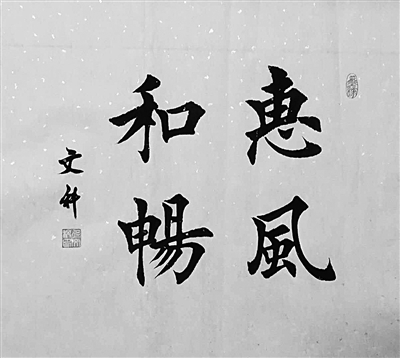 惠風
和暢
文科